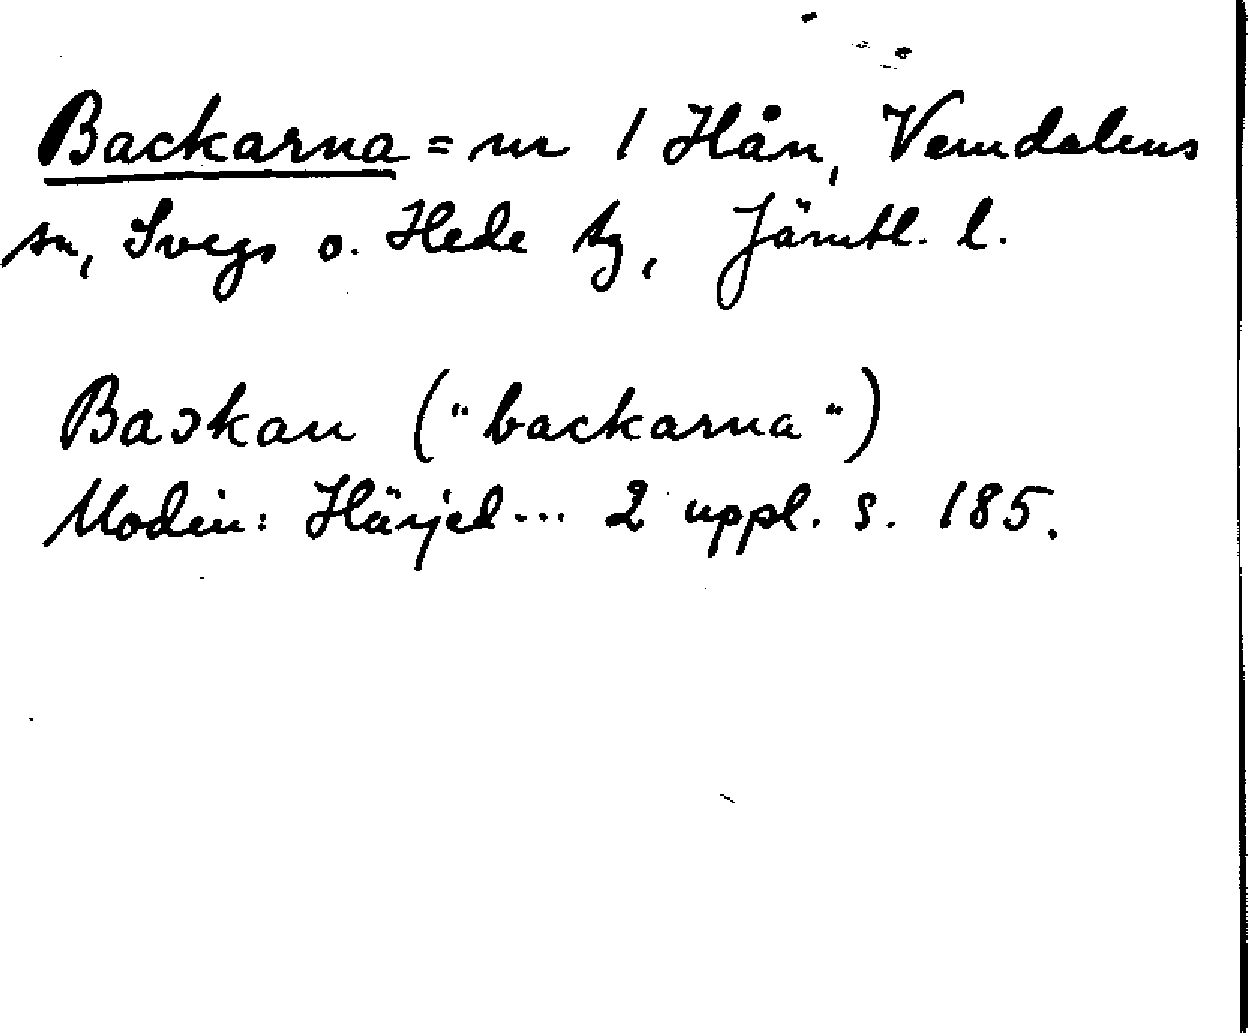 Backarna = nr 1 Hån, Vemdalens
sn, Svegs o. Hede tg, Jämtl. l.
Backan ("backarna")
Modin: Härjed... 2 uppl. s. 185.